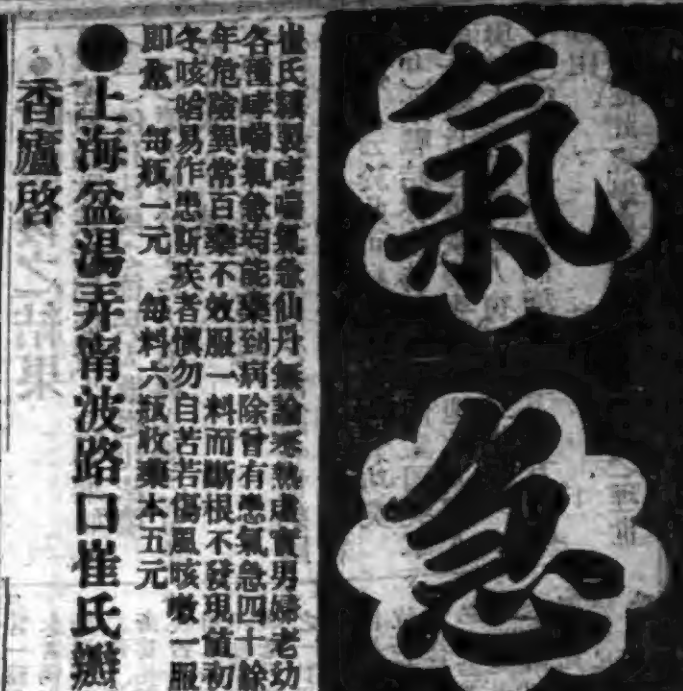 氣急
崔氏精製哮喘氣急仙丹無論寒熱虛實男婦老幼
各種哮喘氣急均能藥到病除曾有患氣急四十餘
年危險異常百藥不效服一料而斷根不發現值初
冬咳嗆易作患斯疾者慎勿自苦若傷風咳嗽一服
即愈 每瓶一元 每料六瓶收藥本五元
●上海盆湯弄甯波路口崔氏瓣
香廬啓